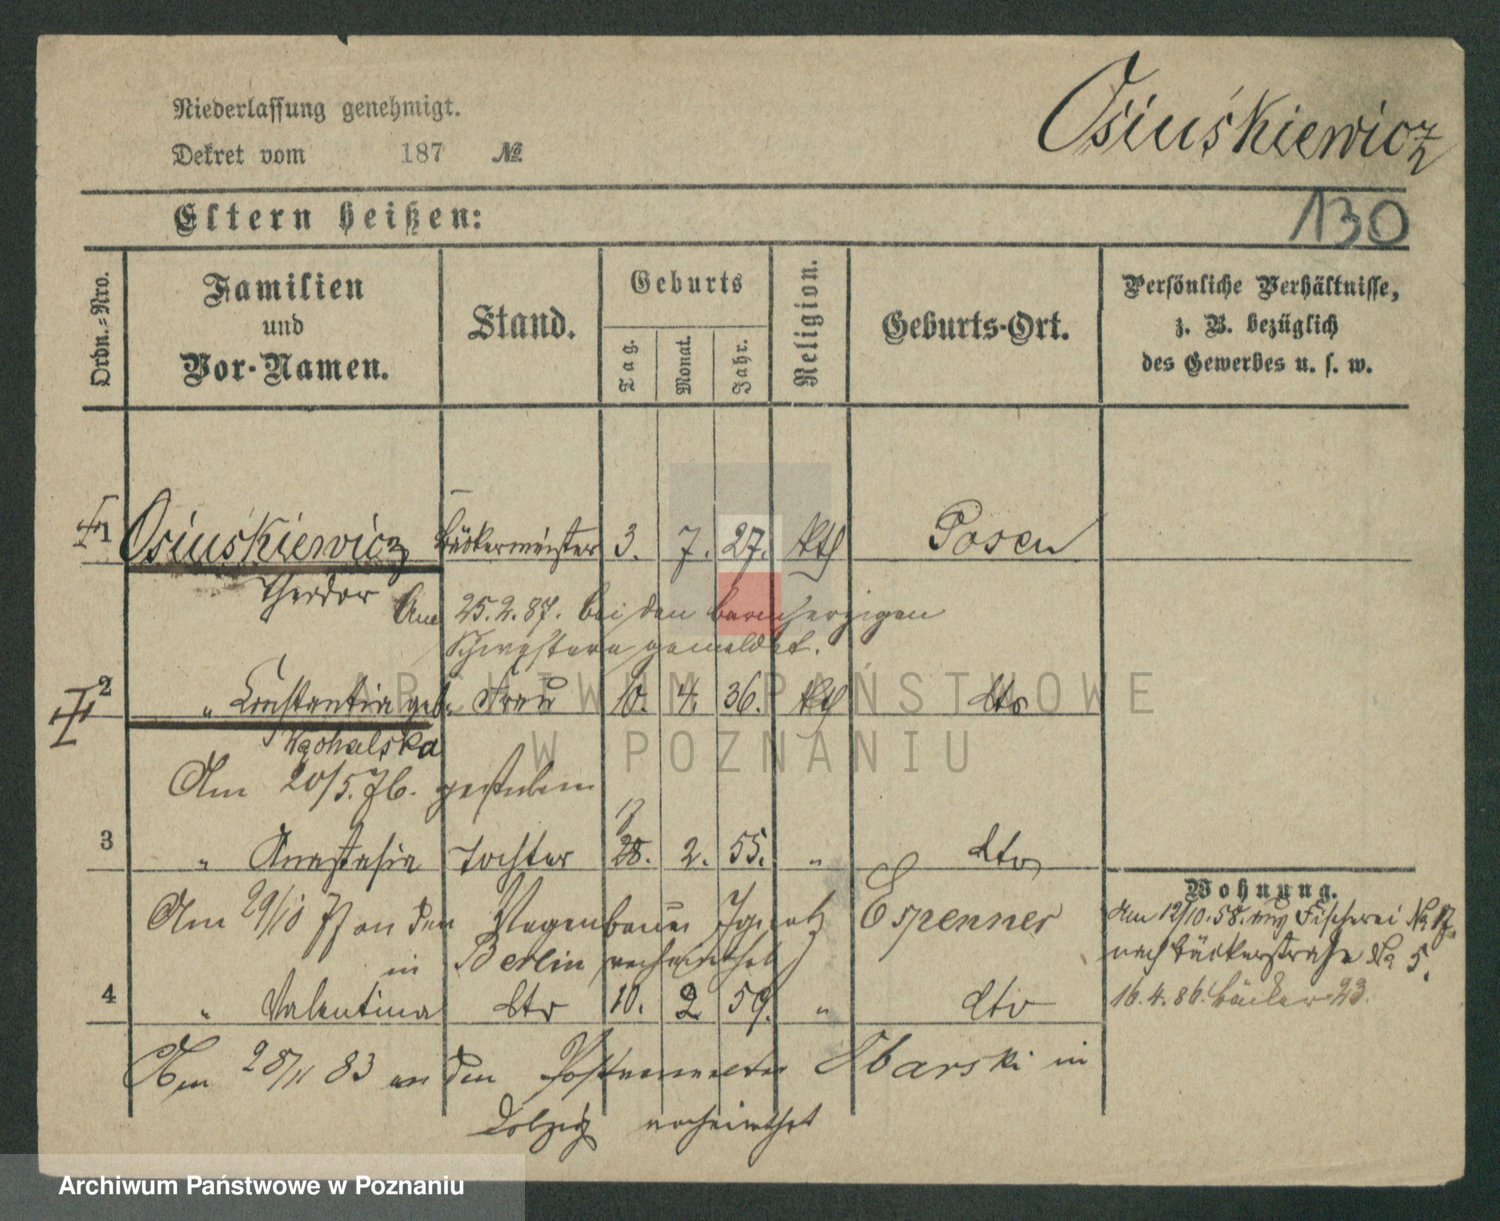 Niederlassung genehmigt.
Dekret vom 187 №
Osiuśkiewicz
Eltern heißen:
130
Ordn.=Nro.
Familien und Vor-Namen.
Stand.
Geburts
Tag.
Monat.
Jahr.
Religion.
Geburts-Ort.
Persönliche Verhältnisse,
z. B. bezüglich
des Gewerbes u. s. w.
1 Osiuśkiewicz Bäckermeister 3. 7. 27. kth Posen
Theodor
Am 25.2.87. bei den barmherzigen
Schwestern gemeldet.
2 " Constantia geb. Frau 10. 4. 36. kth dto
Am 20/5. 76. gestorben
17
3 " Anastasia Tochter 28. 2. 55. " dto
Wohnung.
Am 29/10 77 an den Wagenbauer Ignatz Espenner
in Berlin verheirathet
Am 12/10. 58. Fischerei No 17.
nach Bäckerstraße No 5.
4 " Valentina dto 10. 2 59. " dto
16. 4. 86. Bäcker 23.
Am 28/11 83 an den Obarski in
Dolzig verheirathet
ARCHIWUM PAŃSTWOWE
W POZNANIU
Archiwum Państwowe w Poznaniu